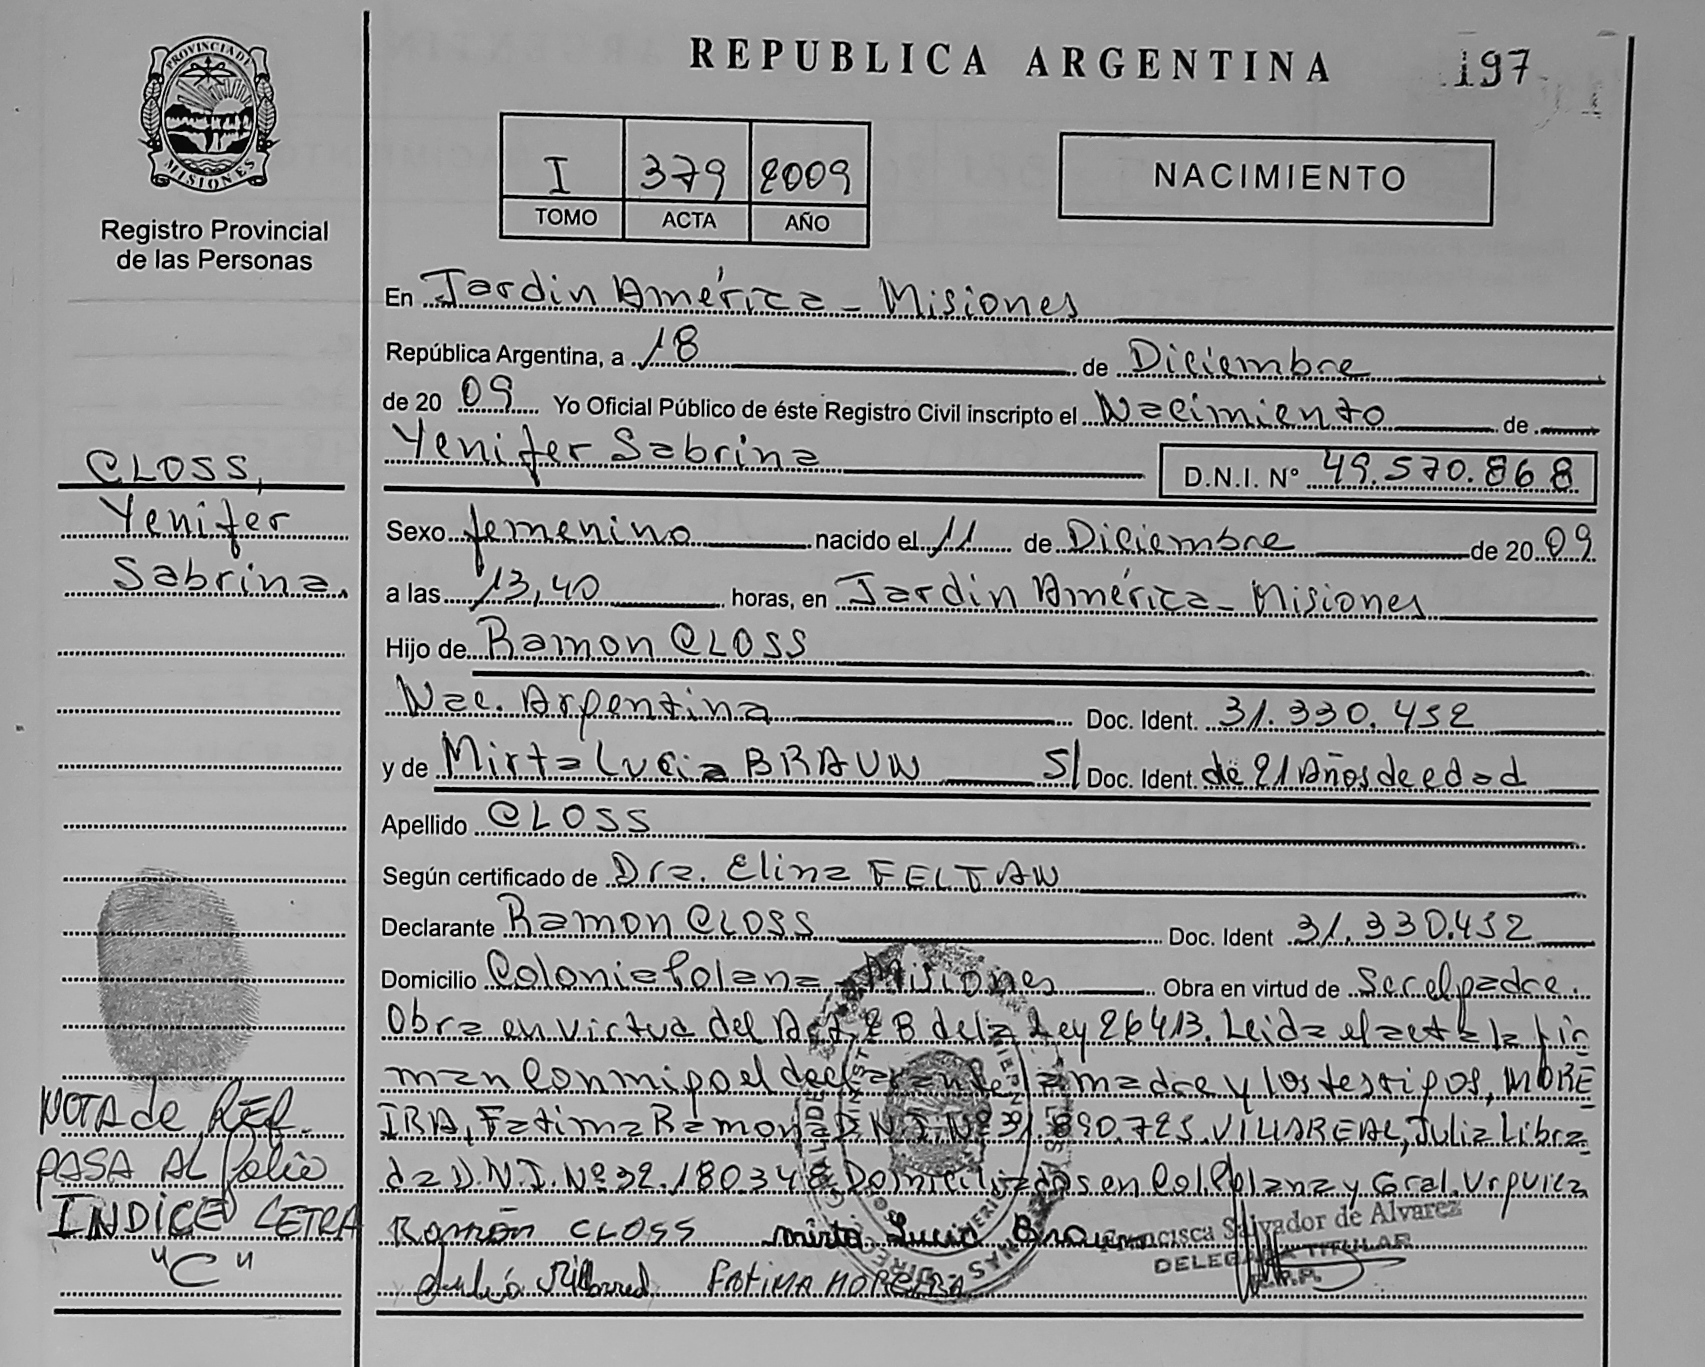 REPUBLICA ARGENTINA
197
PROVINCIA DE MISIONES
Registro Provincial
de las Personas
I 379 2009
TOMO ACTA AÑO
NACIMIENTO
En Jardin América - Misiones
República Argentina, a 18 de Diciembre
de 20 09 Yo Oficial Público de éste Registro Civil inscripto el Nacimiento de
Yenifer Sabrina D.N.I. Nº 49.570.868
CLOSS,
Yenifer
Sabrina.
Sexo femenino nacido el 11 de Diciembre de 20 09
a las 13,40 horas, en Jardin América - Misiones
Hijo de Ramon CLOSS
Nac. Argentina Doc. Ident. 31.330.452
y de Mirta Lucia BRAUN S/ Doc. Ident. de 21 Años de edad
Apellido CLOSS
Según certificado de Dra. Elina FELTAN
Declarante Ramon CLOSS Doc. Ident 31.330.452
Domicilio Colonia Polana - Misiones Obra en virtud de Ser el padre.
Obra en virtud del Art. 28 de la Ley 26413. Leida el acta la fir
man conmigo el declarante la madre y los testigos, MORE
IRA, Fatima Ramona D.N.I. Nº 31.890.725. VILLAREAL, Julia Libra
da D.N.I. Nº 32.18034 Domiciliados en Col. Polana y Gral. Urquiza
NOTA de REF.
PASA AL folio
INDICE LETRA
"C"
Ramón CLOSS Mirta Lucia Braun
Francisca Salvador de Alvarez
DELEGADA TITULAR
R.P.P.
FATIMA MOREIRA